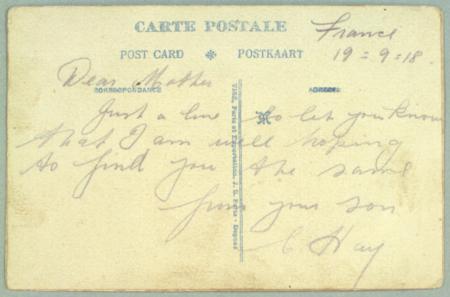 CARTE POSTALE
POST CARD ※ POSTKAART
France
19=9=18.
Dear Mother
CORRESPONDANCE
Just a line to let you know
that I am well hoping
to find you the same
from your son
C Hay